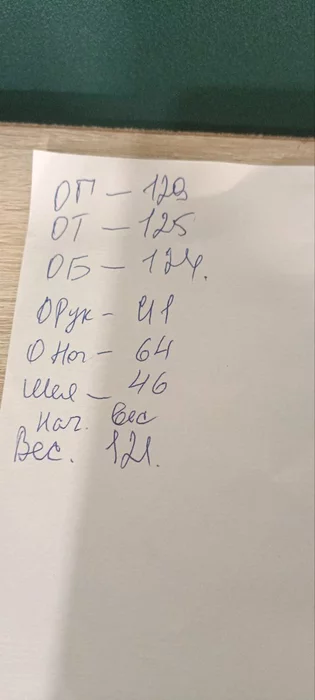 ОП – 129
ОТ – 125
ОБ – 124.
ОРук – 41
О Ног – 64
Шея – 46
Нач. вес
Вес. 121.